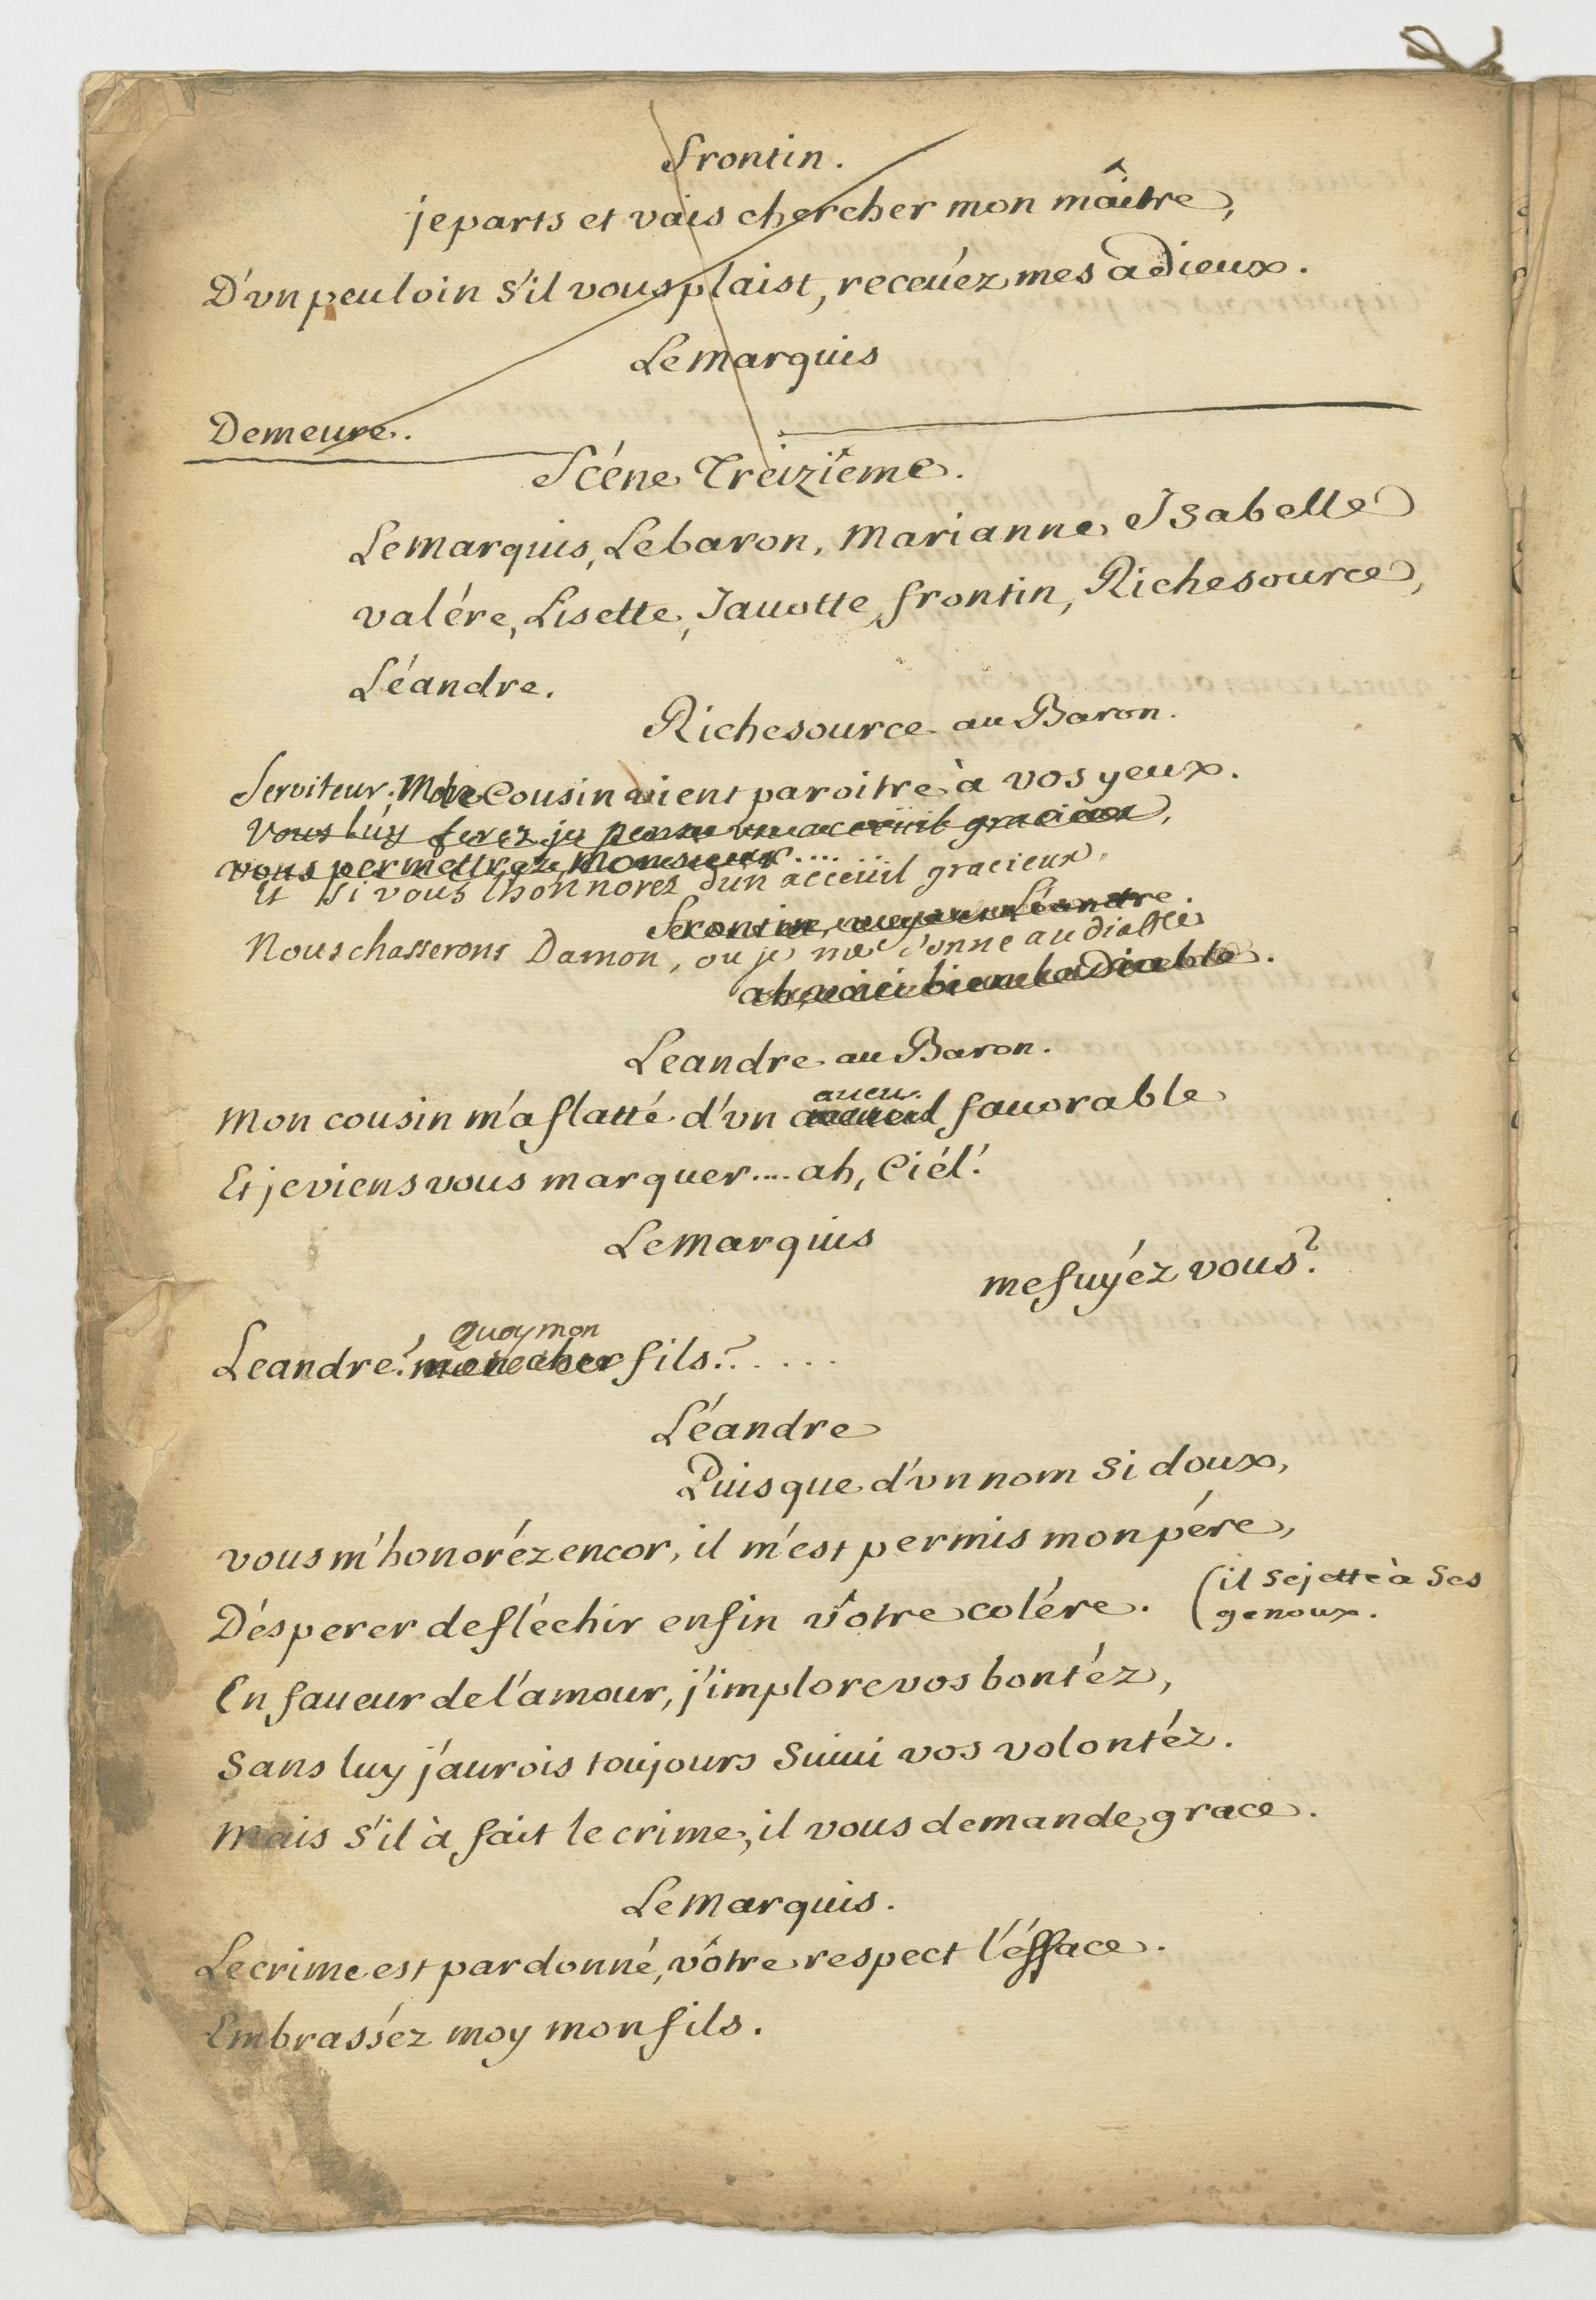 frontin.
je parts et vais chercher mon maître,
D'vn peu loin s'il vous plaist, receuéz mes adieux.
Le marquis
Demeure.
Scéne Treizième.
Le marquis, Le baron, Marianne, Isabelle
valére, Lisette, Jauotte, frontin, Richesource,
Léandre.
Richesource au Baron.
Serviteur. Mon Cousin vient paroitre à vos yeux.
Vous luy ferez je pense un acceüil gracieux,
vous permettrez Monsieur....
Et si vous l'honnorez d'un acceüil gracieux,
frontin, voyant Léandre.
Nous chasserons Damon, ou je me donne au diable
ah, voici bien le Diable.
Leandre au Baron.
aueu
Mon cousin m'a flatté d'vn favorable
Et je viens vous marquer.... ah, Ciél!
Le marquis
me fuyéz vous?
Quoy mon
Leandre? mon cher fils?.....
Léandre
Puisque d'vn nom si doux,
vous m'honoréz encor, il m'est permis mon pére,
D'ésperer de fléchir enfin vôtre colére.
(il se jette à ses
genoux.
En faueur de l'amour, j'implore vos bontéz,
Sans luy j'aurois toujours suiui vos volontéz.
Mais s'il à fait le crime, il vous demande grace.
Le Marquis.
Le crime est pardonné, vôtre respect l'éfface.
Embrasséz moy mon fils.